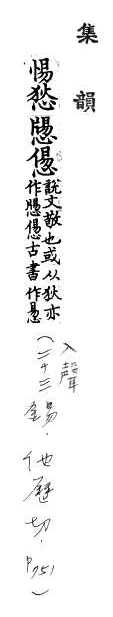 集韻
惕悐
說文敬也或从狄亦
作古書作
入聲
(二十三錫.他歷切.P751)